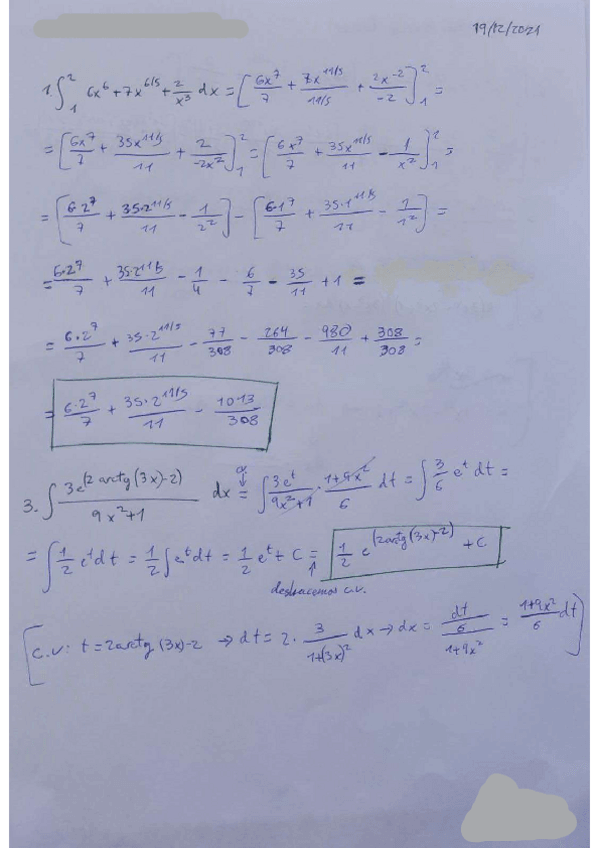 19/12/2021
1. ∫₁² 6x⁶ + 7x^(6/5) + 2/x³ dx = [6x⁷/7 + 7x^(11/5)/(11/5) + 2x⁻²/-2]₁² =
= [6x⁷/7 + 35x^(11/5)/11 + 2/-2x²]₁² = [6x⁷/7 + 35x^(11/5)/11 - 1/x²]₁² =
= [6·2⁷/7 + 35·2^(11/5)/11 - 1/2²] - [6·1⁷/7 + 35·1^(11/5)/11 - 1/1²] =
= 6·2⁷/7 + 35·2^(11/5)/11 - 1/4 - 6/7 - 35/11 + 1 =
= 6·2⁷/7 + 35·2^(11/5)/11 - 77/308 - 264/308 - 980/11 + 308/308 =
= 6·2⁷/7 + 35·2^(11/5)/11 - 1013/308
3. ∫ 3e^(2arctg(3x)-2)/(9x²+1) dx = ∫ 3e^t/(9x²+1) · (1+9x²)/6 dt = ∫ 3/6 e^t dt =
= ∫ 1/2 e^t dt = 1/2 ∫ e^t dt = 1/2 e^t + C = 1/2 e^(2arctg(3x)-2) + C
deshacemos c.v.
[c.v: t = 2arctg(3x)-2 → dt = 2 · 3/(1+(3x)²) dx → dx = dt/(6/(1+9x²)) = (1+9x²)/6 dt]